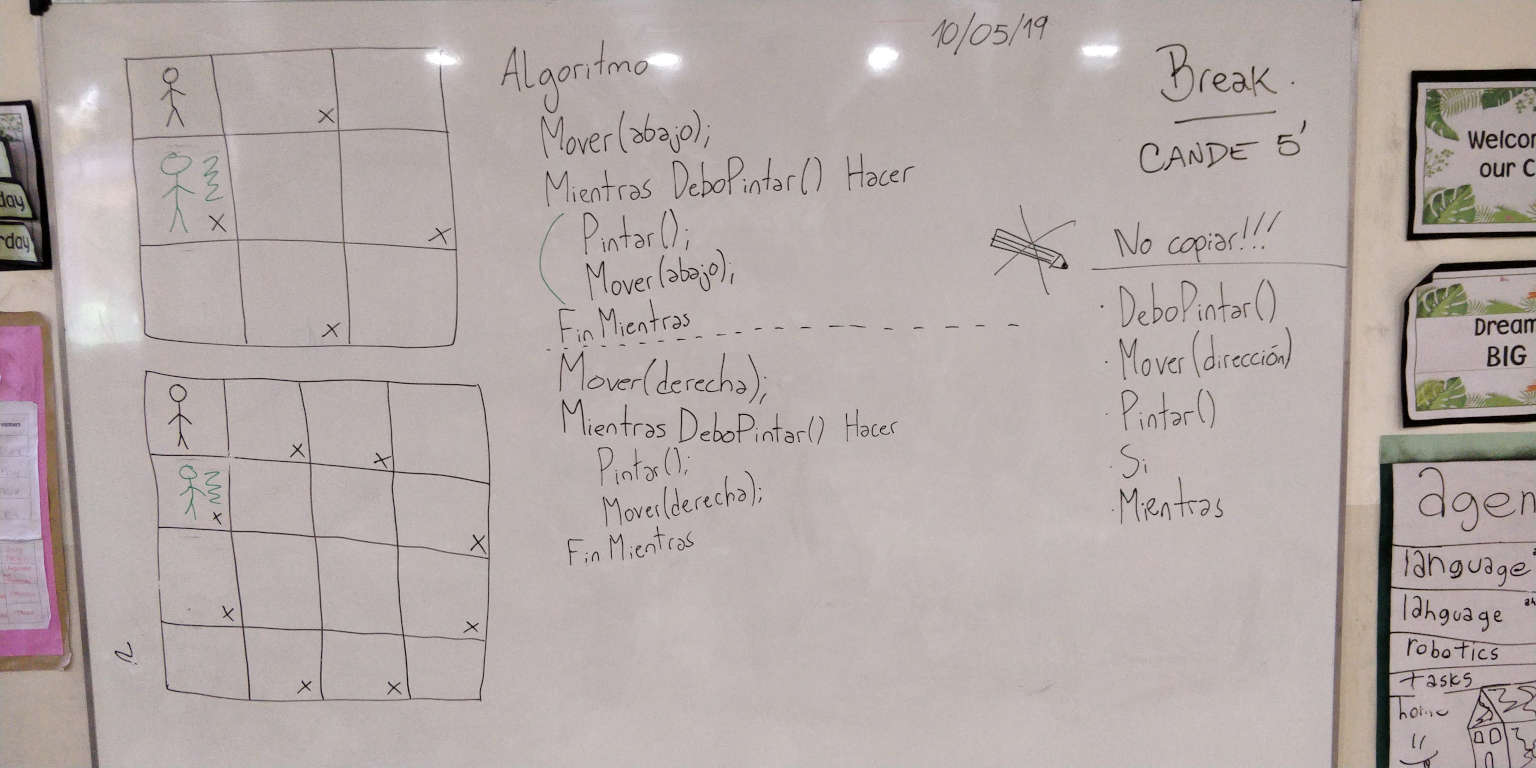 10/05/19
Algoritmo
Mover(abajo);
Mientras DeboPintar() Hacer
Pintar();
Mover(abajo);
Fin Mientras
Mover(derecha);
Mientras DeboPintar() Hacer
Pintar();
Mover(derecha);
Fin Mientras
Break.
CANDE 5'
No copiar!!!
· DeboPintar()
· Mover(dirección)
· Pintar()
· Si
· Mientras
x
x
x
x
x
x
x
x
x
x
x
x
day
rday
Welcom
our C
Dream
BIG
agen
language
language
robotics
tasks